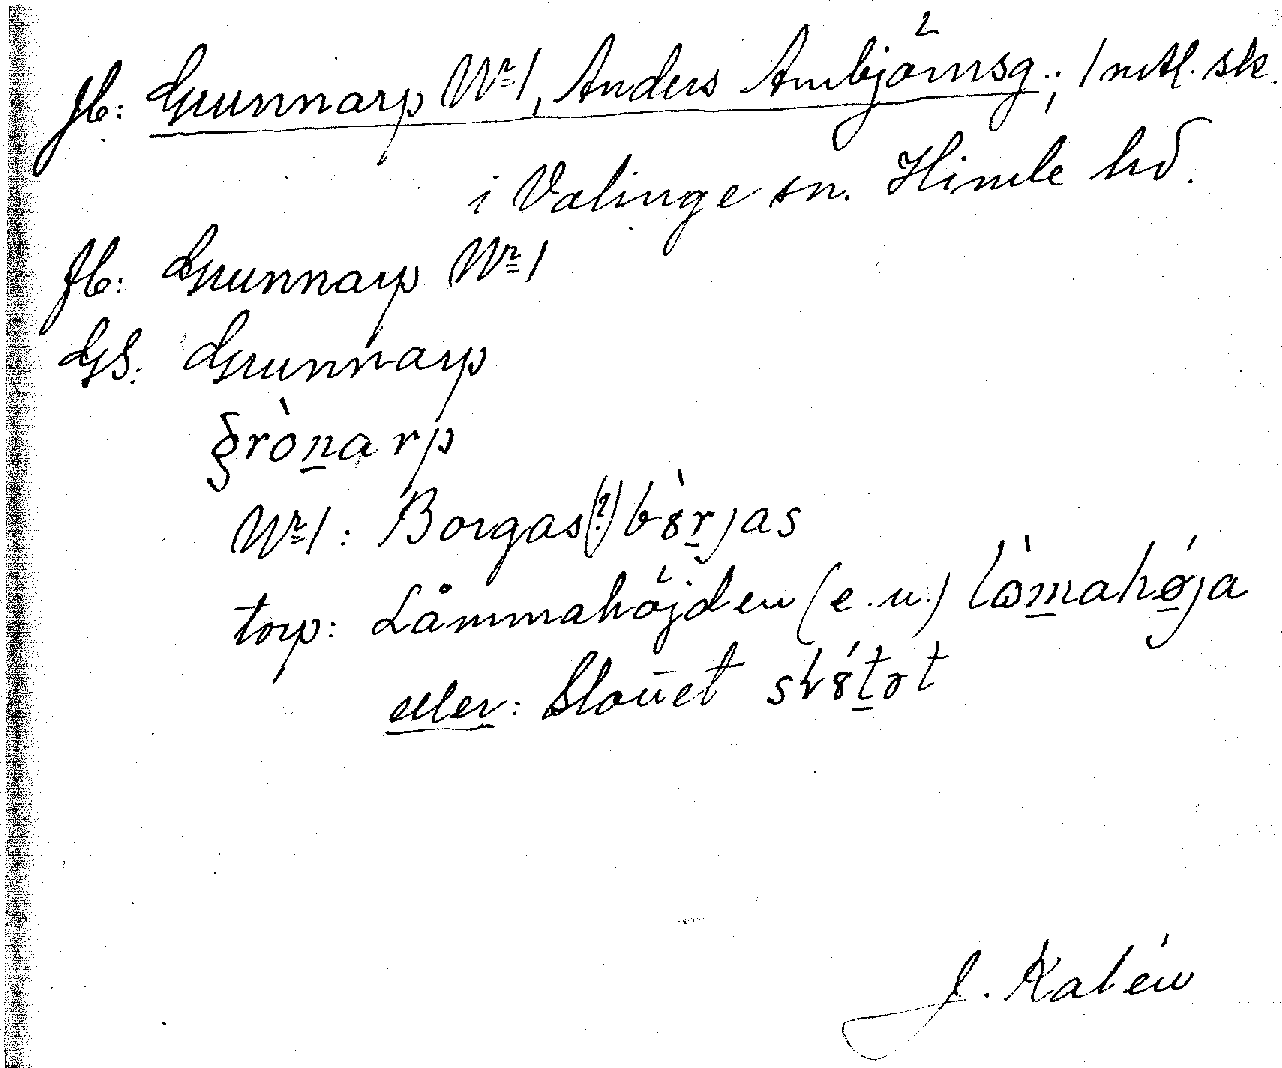 Jb: Grunnarp Nr 1, Anders Ambjörnsg.; 1 mtl. sk.
i Valinge sn. Himle hd.
Jb: Grunnarp Nr 1
GS: Grunnarp
grònarp
Nr 1: Borgas(?) bòrjas
torp: Låmmahöjden (e.u.) lòmahøja
eller:
J. Kalén